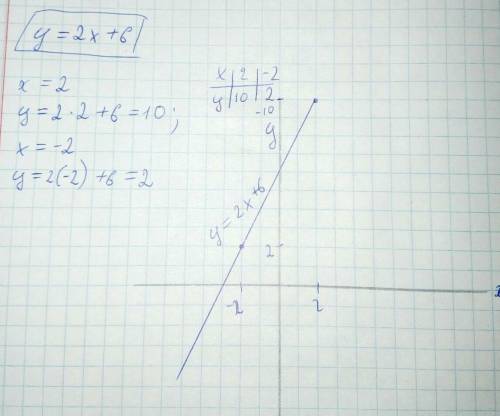 y = 2x+6
x = 2
y = 2·2 +6 = 10;
x = -2
y = 2(-2) +6 = 2
x | 2 | -2
y | 10 | 2
-10
y
y = 2x+6
2
-2
2
x